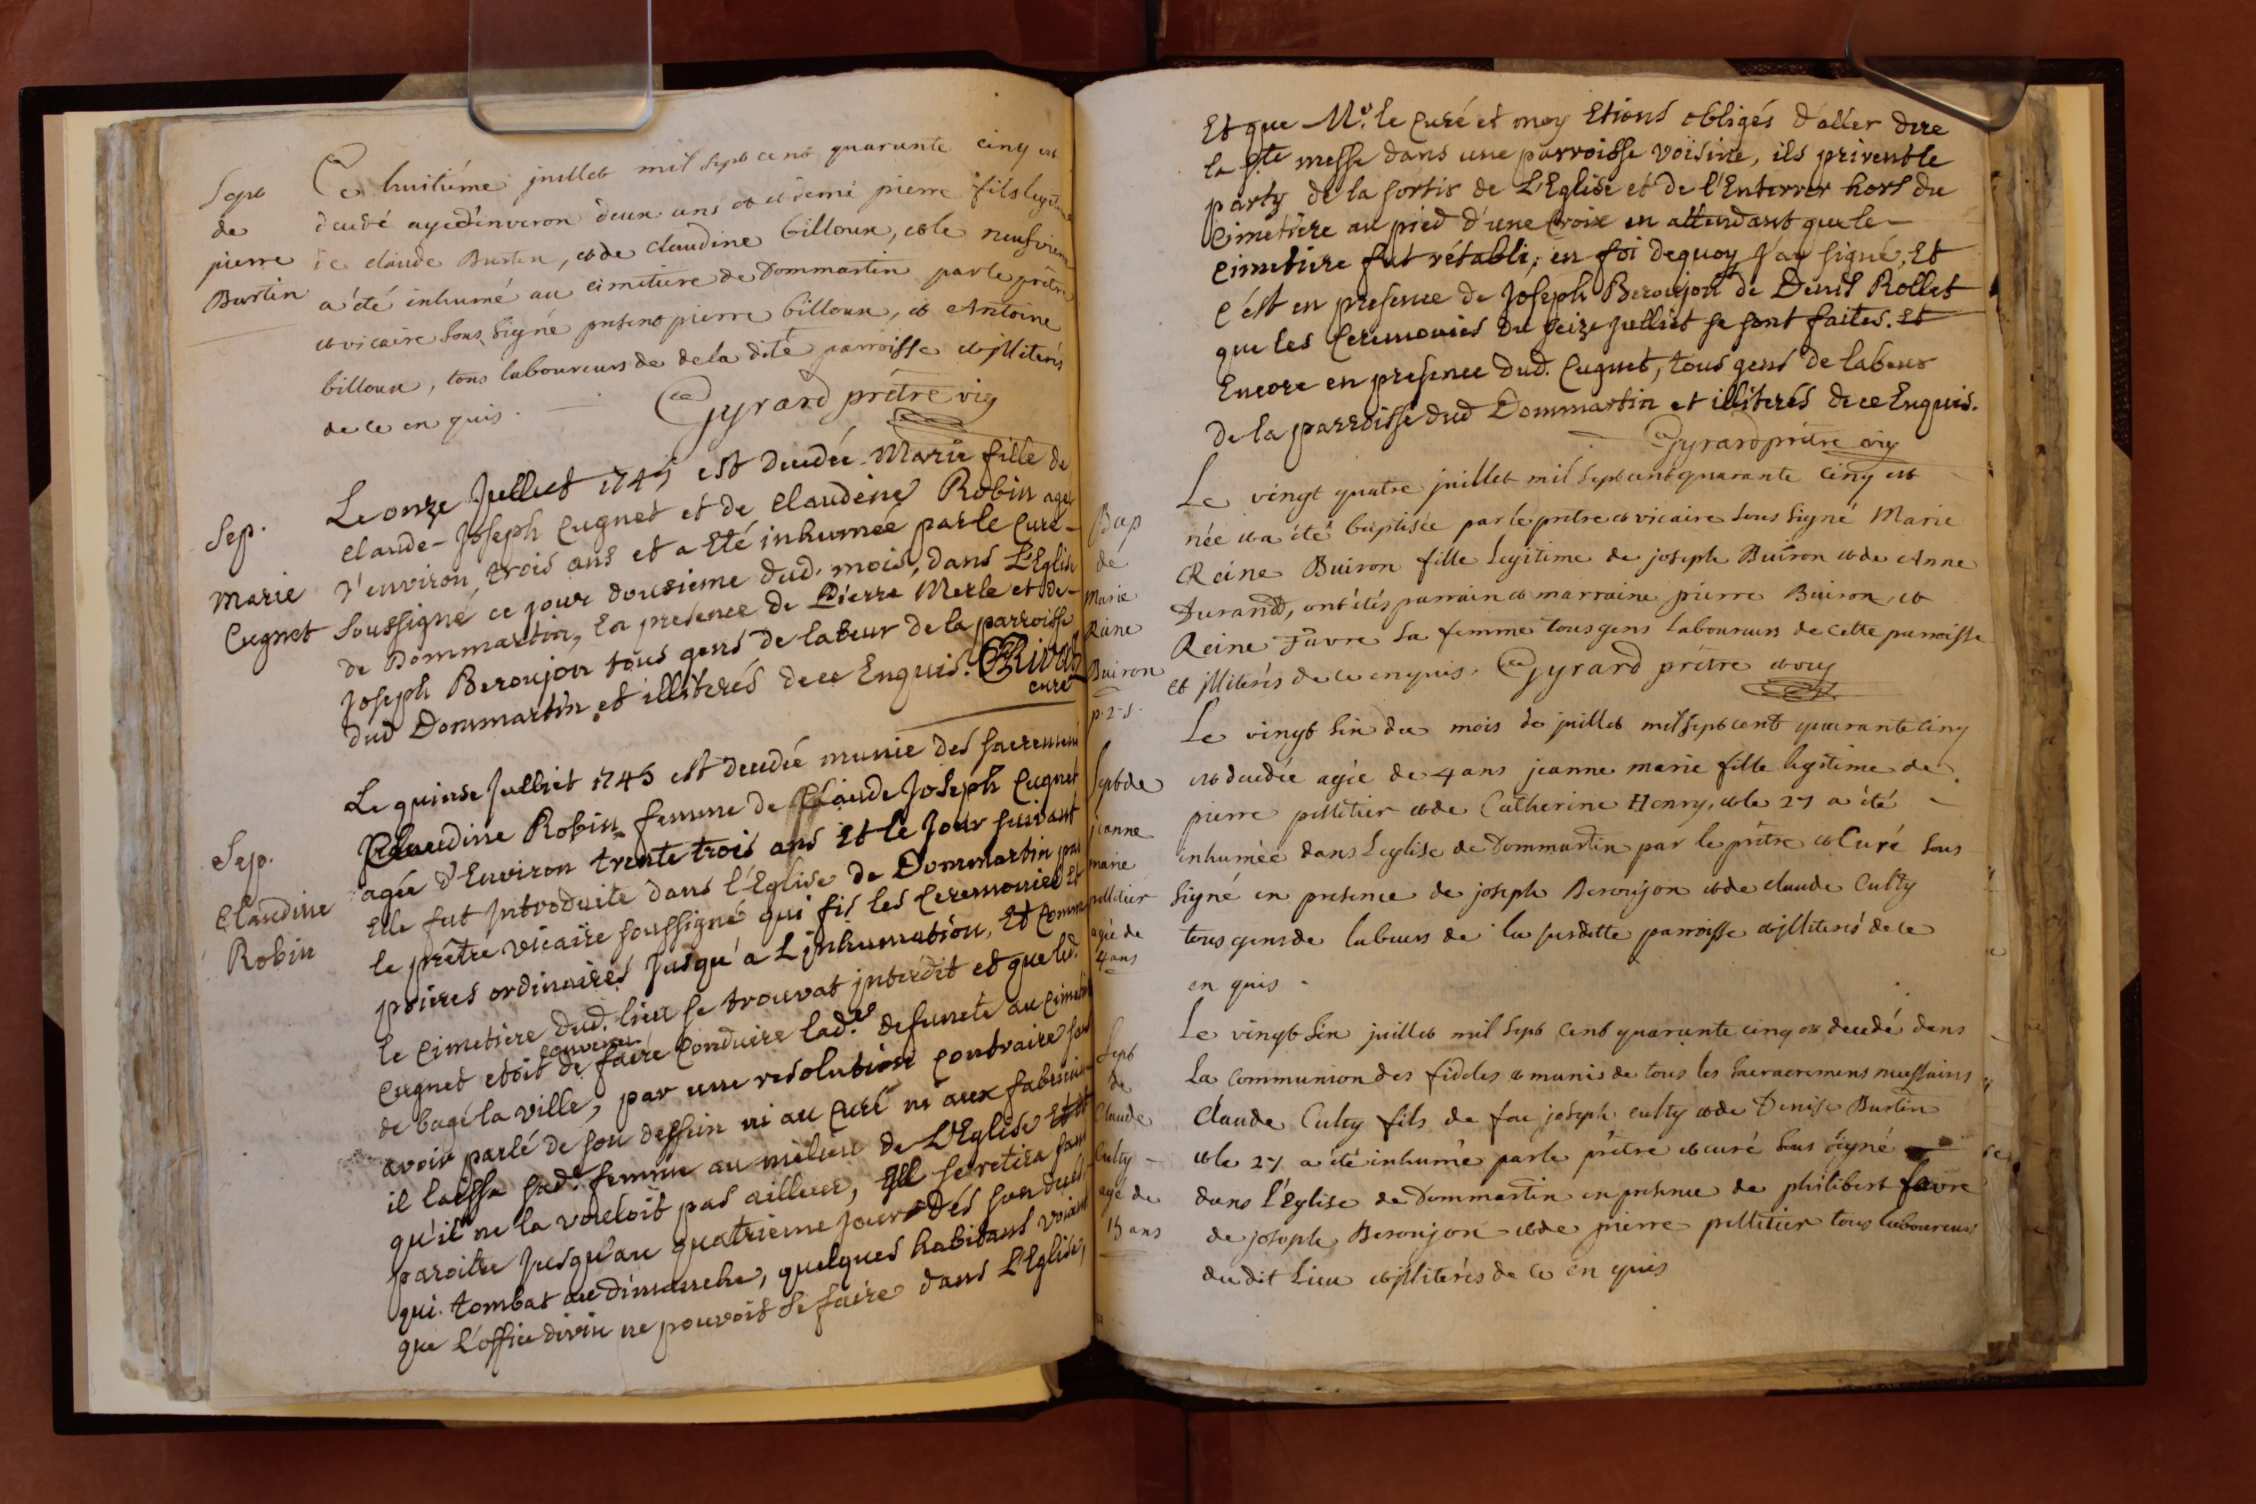 Sept
de
pierre
Burtin
Ce huitiéme juillet mil sept cent quarante cinq est
decedé agé d'environ deux ans et demi pierre fils legitime
de claude Burtin, et de claudine billoux, et le neufvieme
a été inhumé au cimetiere de Dommartin par le prêtre
et vicaire sous signé present pierre billoux, et Antoine
billoux, tous laboureurs de de la dite parroisse et jlliterés
de ce en quis.
Gyrard prêtre vic
Sep.
Marie
Cugnet
Le onze Julliet 1745 est decedée Marie fille de
Claude-Joseph Cugnet et de Claudine Robin agée
d'environ trois ans et a Eté inhumée par le Curé
Soussigné ce jour dousieme dud. mois, dans L'Eglise
de Dommartin, en presence de Pierre Merle et de
Joseph Beroujon tous gens de labeur de la parroisse
dud Dommartin et illiterés de ce Enquis.
curé
Sep.
Claudine
Robin
Le quinse Julliet 1745 est decedée munie des sacremens
Claudine Robin femme de Claude Joseph Cugnet
agée d'Environ trente trois ans Et le Jour suivant
Elle fut Introduite dans l'Eglise de Dommartin par
le prêtre vicaire soussigné qui fis les Ceremonies Et
prieres ordinaires Jusqu'a L'jnhumation, Et comme
le Cimetiere dud. lieu se trouvat jnterdit et que led.
convenu
Cugnet etoit de faire Conduire lad.e defuncte au Cimetiere
de bagé la ville, par une resolution contraire sans
avoir parlé de son dessein ni au Curé ni aux fabriciens
il laissa sad.e femme au milieu de L'Eglise Et dit
qu'il ne la vouloit pas ailleur, Il se retira sans
paroitre Jusqu'au quatrieme jour
qui tombat au dimanche, quelques habitans voiant
que L'office divin ne pouvoit se faire dans L'Eglise,
Et que Mr. le Curé et moy Etions obligés d'aller dire
la Ste messe dans une parroisse voisine, ils prirent le
party de la sortir de L'Eglise et de l'Enterrer hors du
Cimetiere au pied d'une Croix en attendant que le
Cimetiere fut rétabli, en foi dequoy J'ay signé, Et
C'est en presence de Joseph Beroujon de Denis Rollet
que les Ceremonies du seize Julliet se sont faites. Et
Encore en presence dud. Cugnet, tous gens de labeur
de la parroisse dud Dommartin et illiterés de ce Enquis.
Gyrard prêtre vic
Bap
de
Marie
Reine
Buiron
Le vingt quatre juillet mil sept cent quarante cinq est
née et a été baptisée par le prêtre et vicaire sous signé Marie
Reine Buiron fille legitime de joseph Buiron et de Anne
Durand, ont étés parrain et marraine pierre Buiron, et
Reine Favre sa femme tous gens laboureurs de cette parroisse
et jlliterés de ce enquis. Gyrard prêtre et vic
Sept de
jeanne
marie
pelletier
agée de
4 ans
Le vingt six du mois de juillet mil sept cent quarante cinq
est decedée agée de 4 ans jeanne marie fille legitime de
pierre pelletier et de Catherine Henry, et le 27 a été
inhumée dans leglise de Dommartin par le prêtre et Curé sous
signé en presence de joseph Beroujon et de claude Culty
tous gens de labeurs de la susditte parroisse et jlliterés de ce
en quis.
Sept
de
Claude
Culty
agé de
15 ans
Le vingt six juillet mil sept cent quarante cinq est decedé dans
la communion des fideles et munis de tous les sacracremens necessaires
Claude Culty fils de feu joseph culty et de Denise Burtin
et le 27 a été inhumé par le prêtre et curé sous signé
dans l'Eglise de Dommartin en presence de philibert favre
de joseph Beroujon et de pierre pelletier tous laboureurs
du dit Lieu et jlliterés de ce en quis